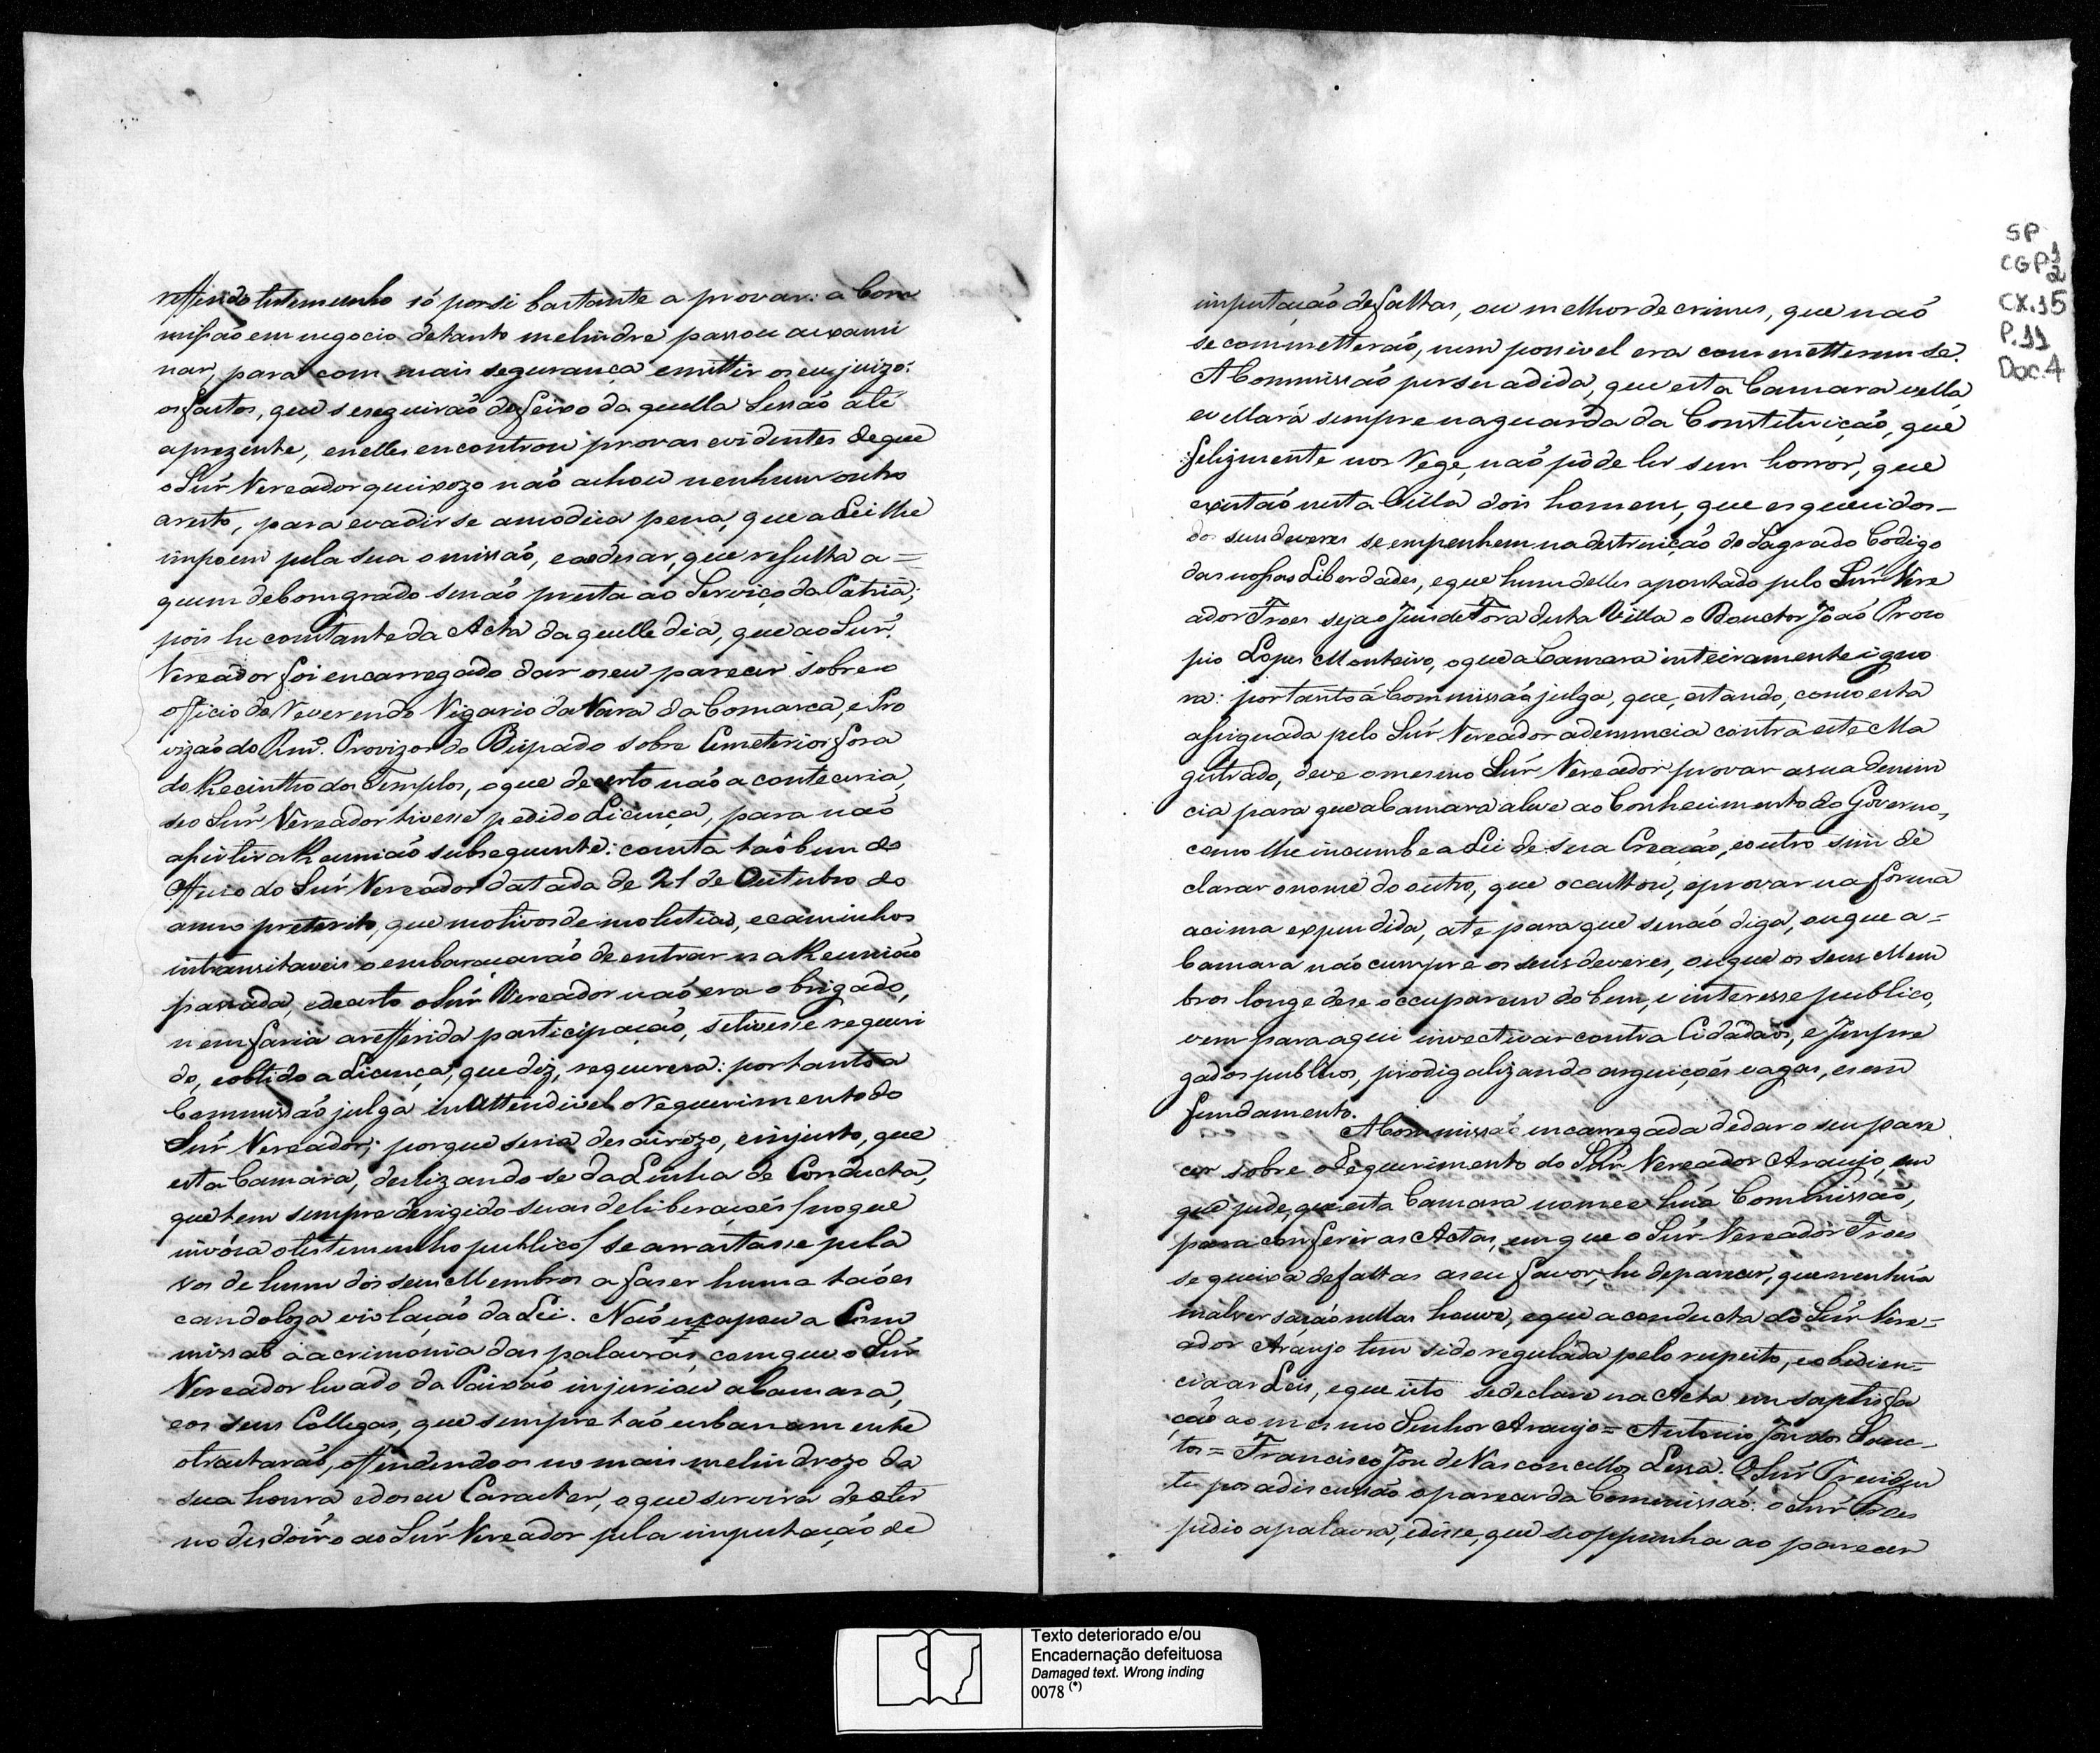 refferido testemunho só por si bastante a provar: a Com
missão em negocio de tanto melindre passou a exami
nar, para com mais segurança emittir o seu juizo:
os factos, que se seguirão desfeixo daquella Sessão até
a prezente, e nelles encontrou provas evidentes de que
o Snr̃ Vereador queixozo não achou nenhum outro
aresto, para evadir-se a modica pena, que a Lei lhe
impoem pela sua omissão, e ao desar, que resulta a=
quem de bom grado se não presta ao Serviço da Patria;
pois he constante da Acta daquelle dia, que ao Snr̃
Vereador foi encarregado dar o seu parecer sobre o
officio do Reverendo Vigario da Vara da Comarca, e Pro
vizão do Rm̃o. Provizor do Bispado sobre Cemeterios fora
do Recintho dos Templos, o que de certo não aconteceria,
se o Snr̃ Vereador tivesse pedido Licença, para não
assistir a Reunião subsequente: consta taõbem do
Officio do Snr̃ Vereador datada de 21 de Outubro do
anno preterito, que motivos de molestias, e caminhos
intransitaveis o embaraçarão de entrar na Reunião
passada, e de certo o Snr̃ Vereador não era obrigado,
nem faria a refferida participação, se tivesse requeri
do, e obtido a Licença, que diz, requerera: portanto a
Commissão julga inattendivel o Requerimento do
Snr̃ Vereador; porque seria desairozo, e injusto, que
esta Camara, deslizando-se da Linha de Conducta,
que tem sempre derigido suas deliberaçoẽs (no que
invoca o testemunho publico) se arrastasse pela
vos de hum dos seus Membros a faser huma tão es
candoloza violação da Lei. Não escapou a Com
missaõ a acrimonia das palavras, com que o Snr̃
Vereador levado da Paixão injuriou a Camara,
e os seus Collegas, que sempre tão urbanamente
o tractarão, offendendo os no mais melindrozo da
sua honra e do seu Caracter, o que servira de eter
no desdoiro ao Snr̃ Vereador pela imputação de
imputação de faltas, ou melhor de crimes, que não
se commetterão, nem possivel era commetterem-se.
A Commissão persuadida, que esta Camara vella
e vellará sempre na guarda da Constituição, que
felizmente nos Rege, não pôde ler sem horror, que
existão nesta Villa dois homens, que esquecidos-
dos seus deveres se empenhem na destruição do Sagrado Codigo
das nossas Liberdades, e que hum delles apontado pelo Snr̃ Vere
ador Froes seja o Juis de Fora desta Villa o Douctor João Proco
pio Lopes Monteiro, o que a Camara inteiramente igno
ra: portanto á Commissão julga, que, estando, como esta
assignada pelo Snr̃ Vereador a denuncia contra este Ma
gistrado, deve o mesmo Snr̃ Vereador provar a sua denun
cia para que a Camara a leve ao Conhecimento do Governo,
como lhe incumbe a Lei de sua Creação, e outro sim de
clarar o nome do outro, que occultou, e provar na forma
acima expendida, ate para que se não diga, ou que a=
Camara não cumpre os seus deveres, ou que os seus Mem
bros longe de se occuparem do bem, e interesse publico,
vem para aqui invectivar contra Cidadãos, e Impre
gados publicos, prodigalizando arguiçoẽs vagas, e sem
fundamento.
A Commissão encarregada de dar o seu pare
cer sobre o Requerimento do Snr̃ Vereador Araujo, em
que pede, que esta Camara nomee huã Commissão,
para conferir as Actas, em que o Snr̃ Vereador Froes
se queixa de faltas a seu favor, he de parecer, que nenhuã
malversação nellas houve, e que a conducta do Snr̃ Vere=
ador Araujo tem sido regulada pelo respeito, e obedien=
cia as Leis, e que isto se declare na Acta em saptisfa
ção ao mesmo Senhor Araujo = Antonio José dos Sanc-
tos = Francisco José de Vasconcellos Lessa. O Snr̃ Presiden
te pos a discussão o parecer da Commissão: o Snr̃ Froes
pedio a palavra, e disse, que se oppunha ao parecer
SP
CGP 1
2
CX.15
P.11
Doc.4
Texto deteriorado e/ou
Encadernação defeituosa
Damaged text. Wrong inding
0078 (*)